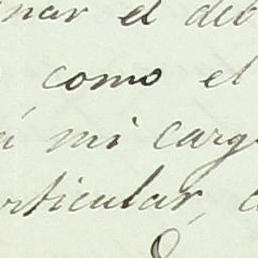 nar el deb
, como el
á mi carg
rticular,